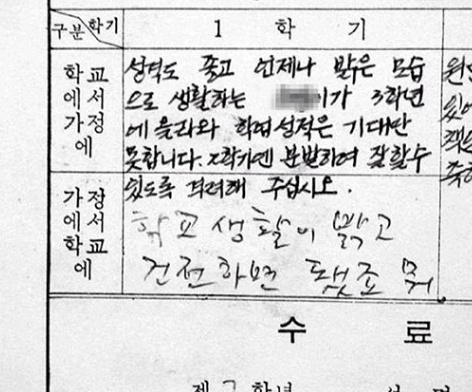 구분 학기
1 학 기
학교
에서
가정
에
성적도 좋고 언제나 밝은 모습
으로 생활하는 이가 3학년
에 올라와 학업성적은 기대만
못합니다. 2학기엔 분발하여 잘할수
있도록 격려해 주십시오.
가정
에서
학교
에
학교생활이 밝고
건전하면 됐죠 뭐
수 료
제 3 학년